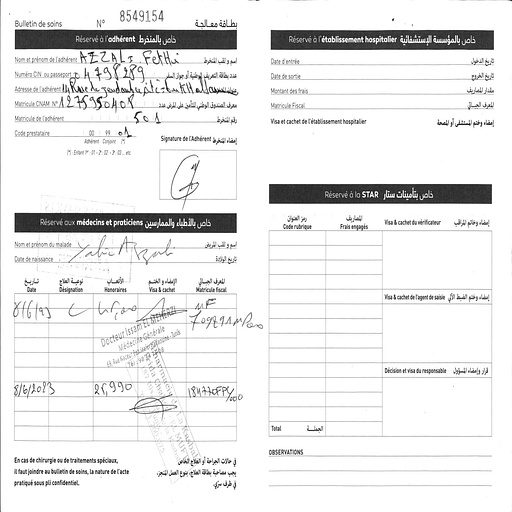 Bulletin de soins N° 8549154 بطاقة معالجة
Réservé à l'adhérent خاص بالمنخرط
Nom et prénom de l'adhérent AZZALI Fethi اسم و لقب المنخرط
Numéro CIN ou passeport 04798289 عدد بطاقة التعريف الوطنية أو جواز السفر
Adresse de l'adhérent عنوان المنخرط
Matricule CNAM N° 1275950408 معرف الصندوق الوطني للتأمين على المرض عدد
Matricule de l'adhérent 501 رقم المنخرط
Code prestataire 00 99 01
Adhérent Conjoint (*)
(*) : Enfant 1er - 01 - 2è - 02 - 3è - 03 ... etc
Signature de l'Adhérent إمضاء المنخرط
Réservé aux médecins et praticiens خاص بالأطباء والممارسين
Nom et prénom du malade اسم و لقب المريض
Date de naissance تاريخ الولادة
تاريخ نوعية العلاج الأتعاب الإمضاء و الختم المعرف الجبائي
Date Désignation Honoraires Visa & cachet Matricule fiscal
8/6/23 C
Docteur Issam
Médecine Générale
8/6/2023 21,990
En cas de chirurgie ou de traitements spéciaux,
il faut joindre au bulletin de soins, la nature de l'acte
pratiqué sous pli confidentiel.
في حالات الجراحة أو العلاج الخاص
يجب مصاحبة بطاقة العلاج، بنوع العمل المنجز،
في ظرف سري.
Réservé à l'établissement hospitalier خاص بالمؤسسة الإستشفائية
Date d'entrée تاريخ الدخول
Date de sortie تاريخ الخروج
Montant des frais مقدار المصاريف
Matricule Fiscal المعرف الجبائي
Visa et cachet de l'établissement hospitalier إمضاء وختم المستشفى أو المصحة
Réservé à la STAR خاص بتأمينات ستار
رمز العنوان المصاريف
Code rubrique Frais engagés Visa & cachet du vérificateur إمضاء وخاتم المراقب
Visa & cachet de l'agent de saisie إمضاء وختم الضبط الآلي
Décision et visa du responsable قرار وإمضاء المسؤول
Total الجملة
OBSERVATIONS